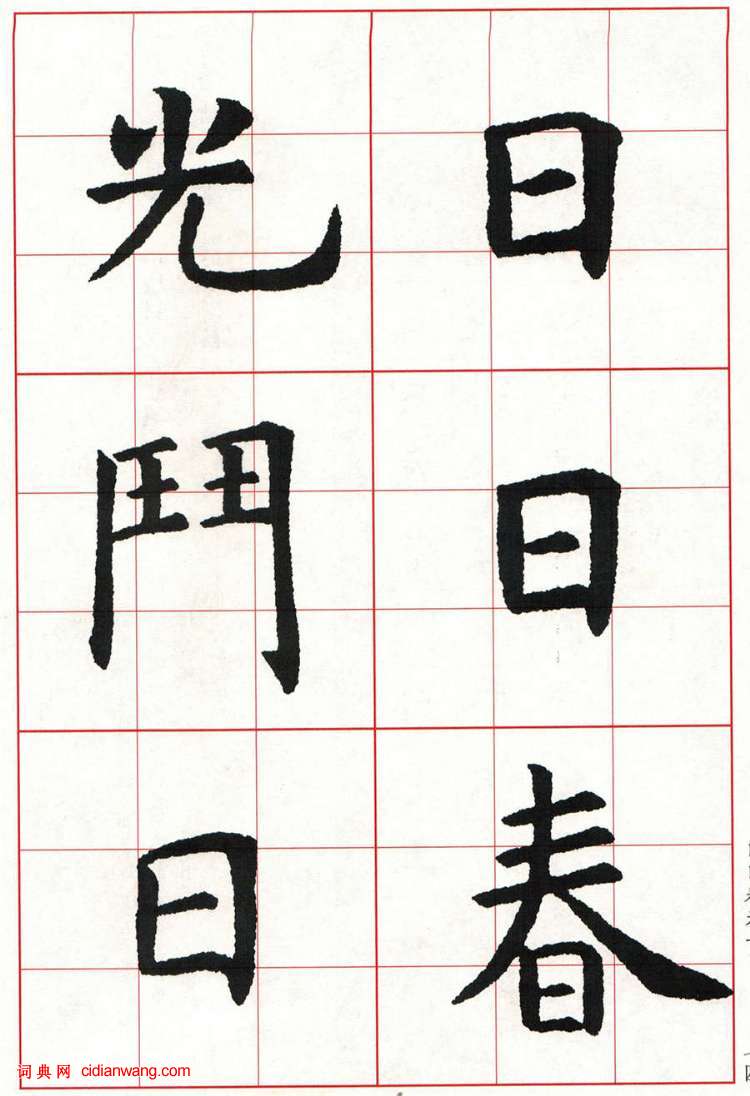 日日春
光鬥日
词典网 cidianwang.com